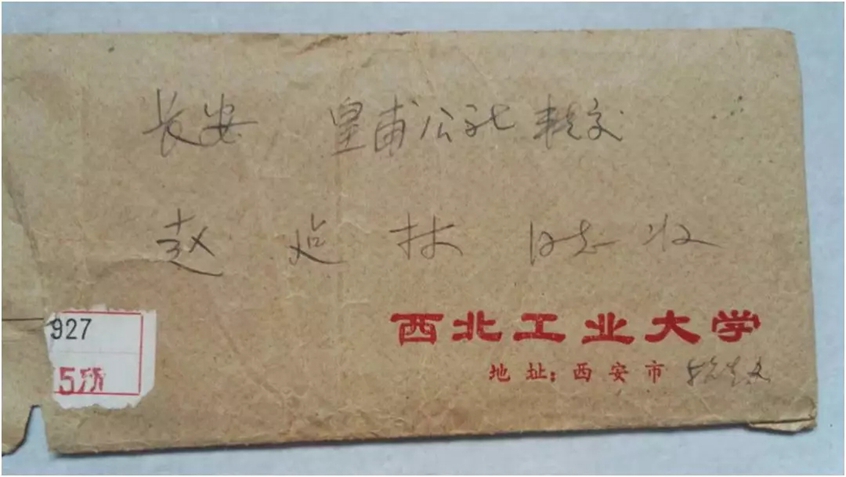 长安 皇甫公社转交
赵 延 林 同志收
927
5所
西北工业大学
地址：西安市